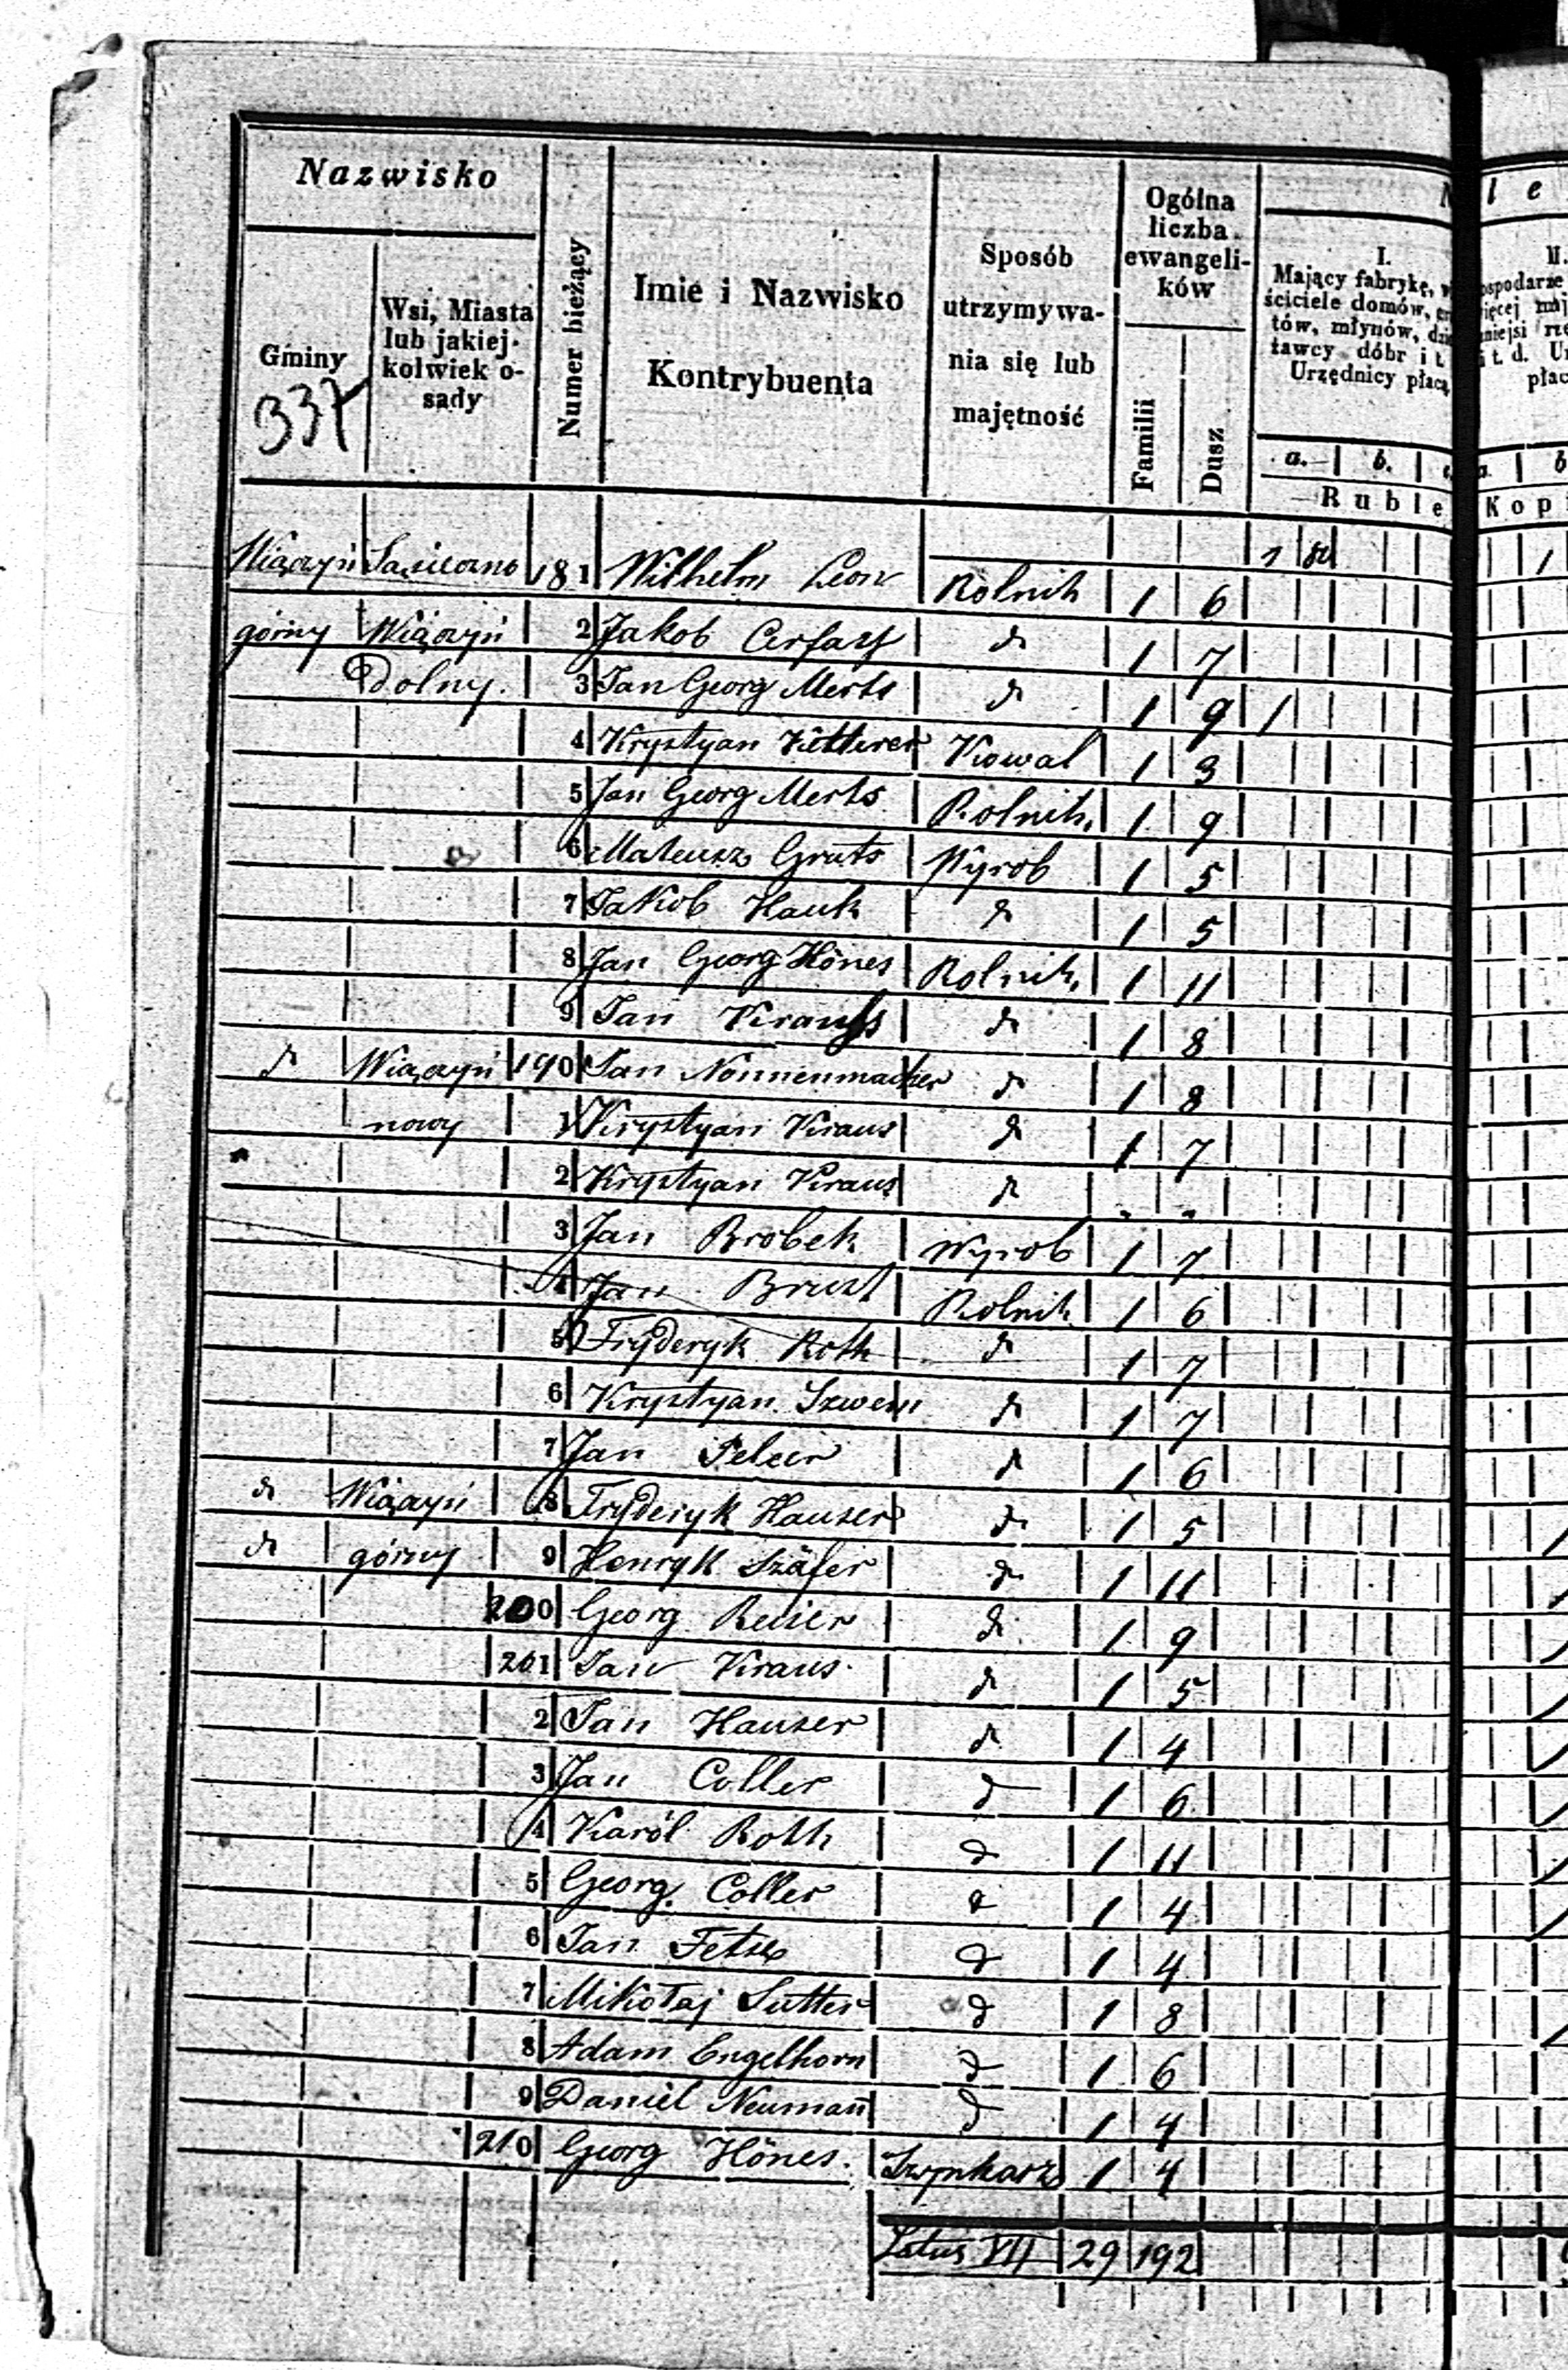 Nazwisko
Gminy
Wsi, Miasta
lub jakiej-
kolwiek o-
sady
337
Numer bieżący
Imie i Nazwisko
Kontrybuenta
Sposób
utrzymywa-
nia się lub
majętność
Ogólna
liczba
ewangeli-
ków
Familii
Dusz
I.
Mający fabrykę,
ściciele domów,
tów, młynów,
tawcy dóbr i t.
Urzędnicy płacą
a. b.
Ruble Kop
Wiączyń 181 Wilhelm Leon Rolnik 1 6
górny Wiączyń 2 Jakob d 1 7
Dolny. 3 Jan Georg Merts d 1 9 1
4 Krystyan Ketterer Kowal 1 3
5 Jan Georg Merts Rolnik 1 9
6 Mateusz Wyrob 1 5
7 Jakob Hauk d 1 5
8 Jan Georg Hönes Rolnik 1 11
9 Jan Krauss d 1 8
d Wiączyń 190 Jan Nonnenmacher d 1 8
nowy 1 Krystyan Kraus d 1 7
2 Krystyan Kraus d " "
3 Jan Brobek Wyrob 1 7
4 Jan Rolnik 1 6
5 Fryderyk Roth d 1 7
6 Krystyan d 1 7
7 Jan d 1 6
d Wiączyń 8 Fryderyk Hauser d 1 5
d górny 9 Henryk Szäfer d 1 11
200 Georg d 1 9
201 Jan Kraus d 1 5
2 Jan Hauser d 1 4
3 Jan Coller d 1 6
4 Karól Roth d 1 11
5 Georg Coller d 1 4
6 Jan d 1 4
7 Mikołaj Sutter d 1 8
8 Adam Engelhorn d 1 6
9 Daniel Neumañ d 1 4
210 Georg Hönes. Szynkarz 1 4
Latus VII 29 192